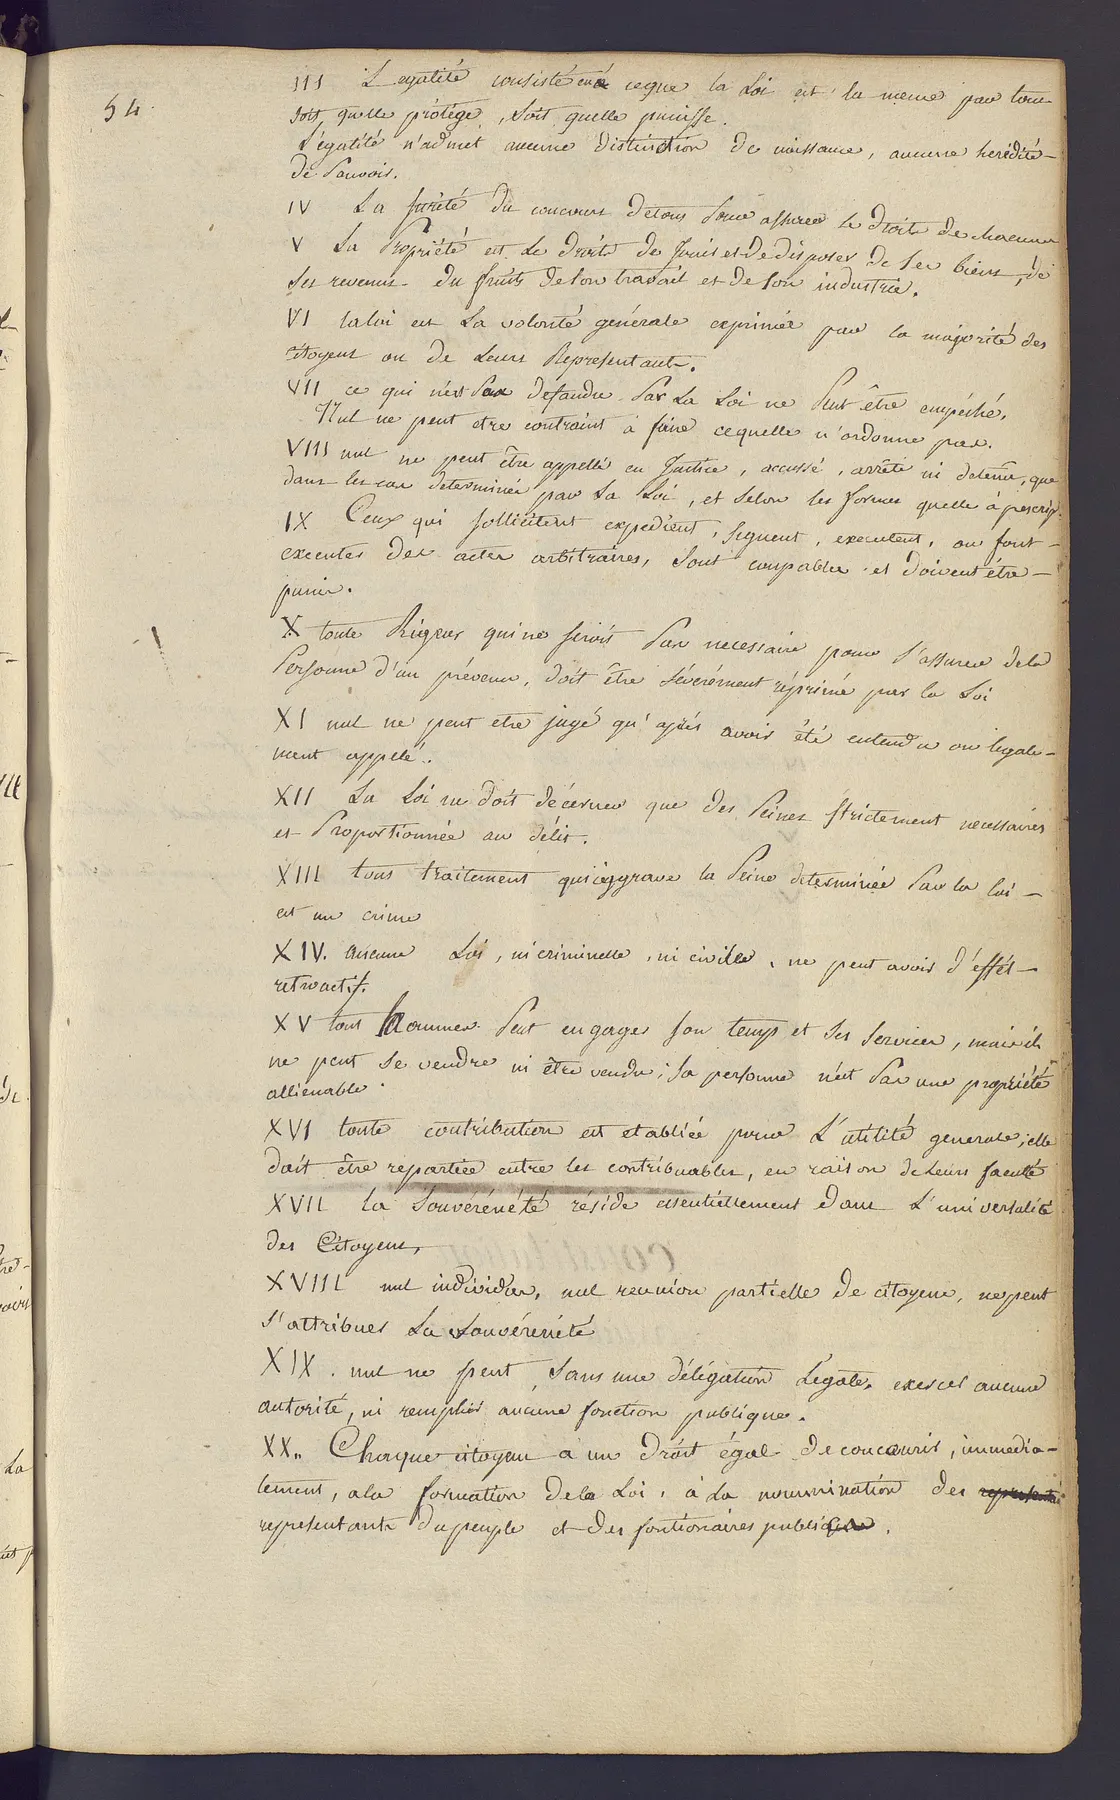 54
III L'egalité consiste en à ceque la Loi est la meme pour tous
soit quelle protége, soit quelle punisse.
L'égalité n'admet aucune distinction de naissance, aucune herédité
de Pouvoir.
IV La sureté du concours detous Pour assurer Le droits de chacun
V La Propriété est Le droits de Jouir et de disposer de ses biens, de
ses revenus du fruits deson travail et de son industrie.
VI laloi est La volonté générale exprimée par la majorité des
citoyens ou de Leurs Representants.
VII ce qui n'est Pas defandu Par La Loi ne Peut être empéché,
Nul ne peut etre contraint à faire cequelle n'ordonne pas.
VIII nul ne peut être appellé en Justice, accussé, arrêté ni detenu, que
dans les cas determinée par La Loi, et selon les formes quelle à prescrip.
IX Ceux qui sollicitent expedient, signent, executent, ou font
executés des actes arbitraires, sont coupables et doivent être
punis.
X toute Rigeur qui ne serois Pas necessaire pour s'assurer dela
Personne d'un prévenu, doit être séverément réprimé par la Loi
XI nul ne peut etre jugé qu'aprés avoir été entendu ou legale-
ment appelé.
XII La Loi ne doit décerner que des Peines strictement necessaires
et Proportionnée au délit.
XIII tous traitement qui aggrave la Peine determinée Par la loi
est un crime
XIV. aucune Loi, ni criminelle, ni civille, ne peut avoir d'éffét
retroactif.
XV tous hommes Peut engager son temps et ses services, mais il
ne peut se vendre ni être vendu; sa personne n'est Pas une propriété
allienable.
XVI toute contribution est etabliée pour L'utilité generale; elle
doit être repartiée entre les contribuables, en raison de leurs faculté
XVII la souvéréneté réside essentiellement dans L'universalité
des Citoyens,
XVIII nul individus, nul reunion partielle de citoyens, nepeut
s'attribuer La souvéréneté
XIX. nul ne peut, sans une délégation Legale, exercer aucune
autorité, ni remplir aucune fonction publique.
XX,, Chaque citoyen a un droit égal de concourir, immedia-
tement, ala formation dela Loi, à La nommination des representa
representants dupeuple et des fontionaires publiques.